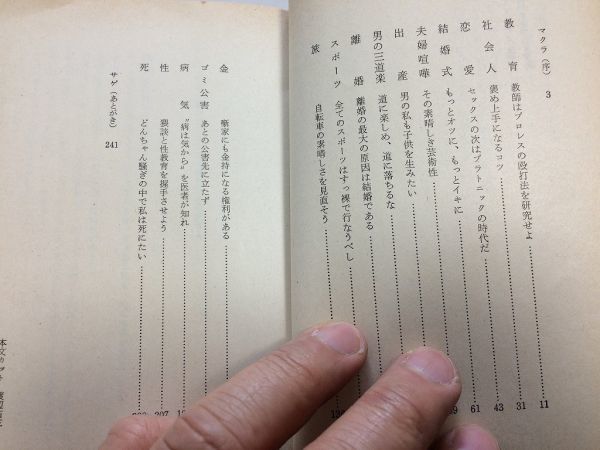 マクラ(序) 3
教育 教師はプロレスの殴打法を研究せよ 11
社会人 褒め上手になるコツ 31
恋愛 セックスの次はプラトニックの時代だ 43
結婚式 もっとオツに、もっとイキに 61
夫婦喧嘩 その素晴しき芸術性
出産 男の私も子供を生みたい
男の三道楽 道に楽しめ、道に落ちるな
離婚 離婚の最大の原因は結婚である
スポーツ 全てのスポーツはすっ裸で行なうべし
旅 自転車の素晴しさを見直そう
金 噺家にも金持になる権利がある
ゴミ公害 あとの公害先に立たず
病気 “病は気から”を医者が知れ
性 猥談と性教育を握手させよう 207
死 どんちゃん騒ぎの中で私は死にたい
サゲ(あとがき) 241
本文カット